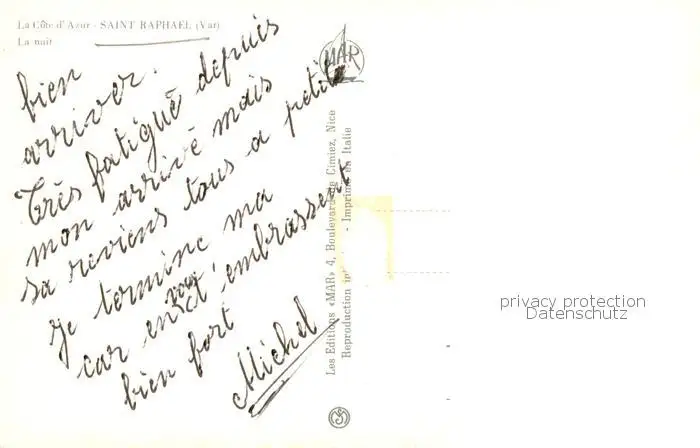 La Côte d'Azur - SAINT RAPHAEL (Var)
La nuit
bien
arriver.
Très fatigué depuis
mon arrivé mais
sa reviens tous a petit
Je termine ma
car en vous
embrassent
bien fort
Michel
MAR
Les Editions «MAR» 4, Boulevard de Cimiez, Nice
Reproduction in - Imprimé en Italie
privacy protection
Datenschutz